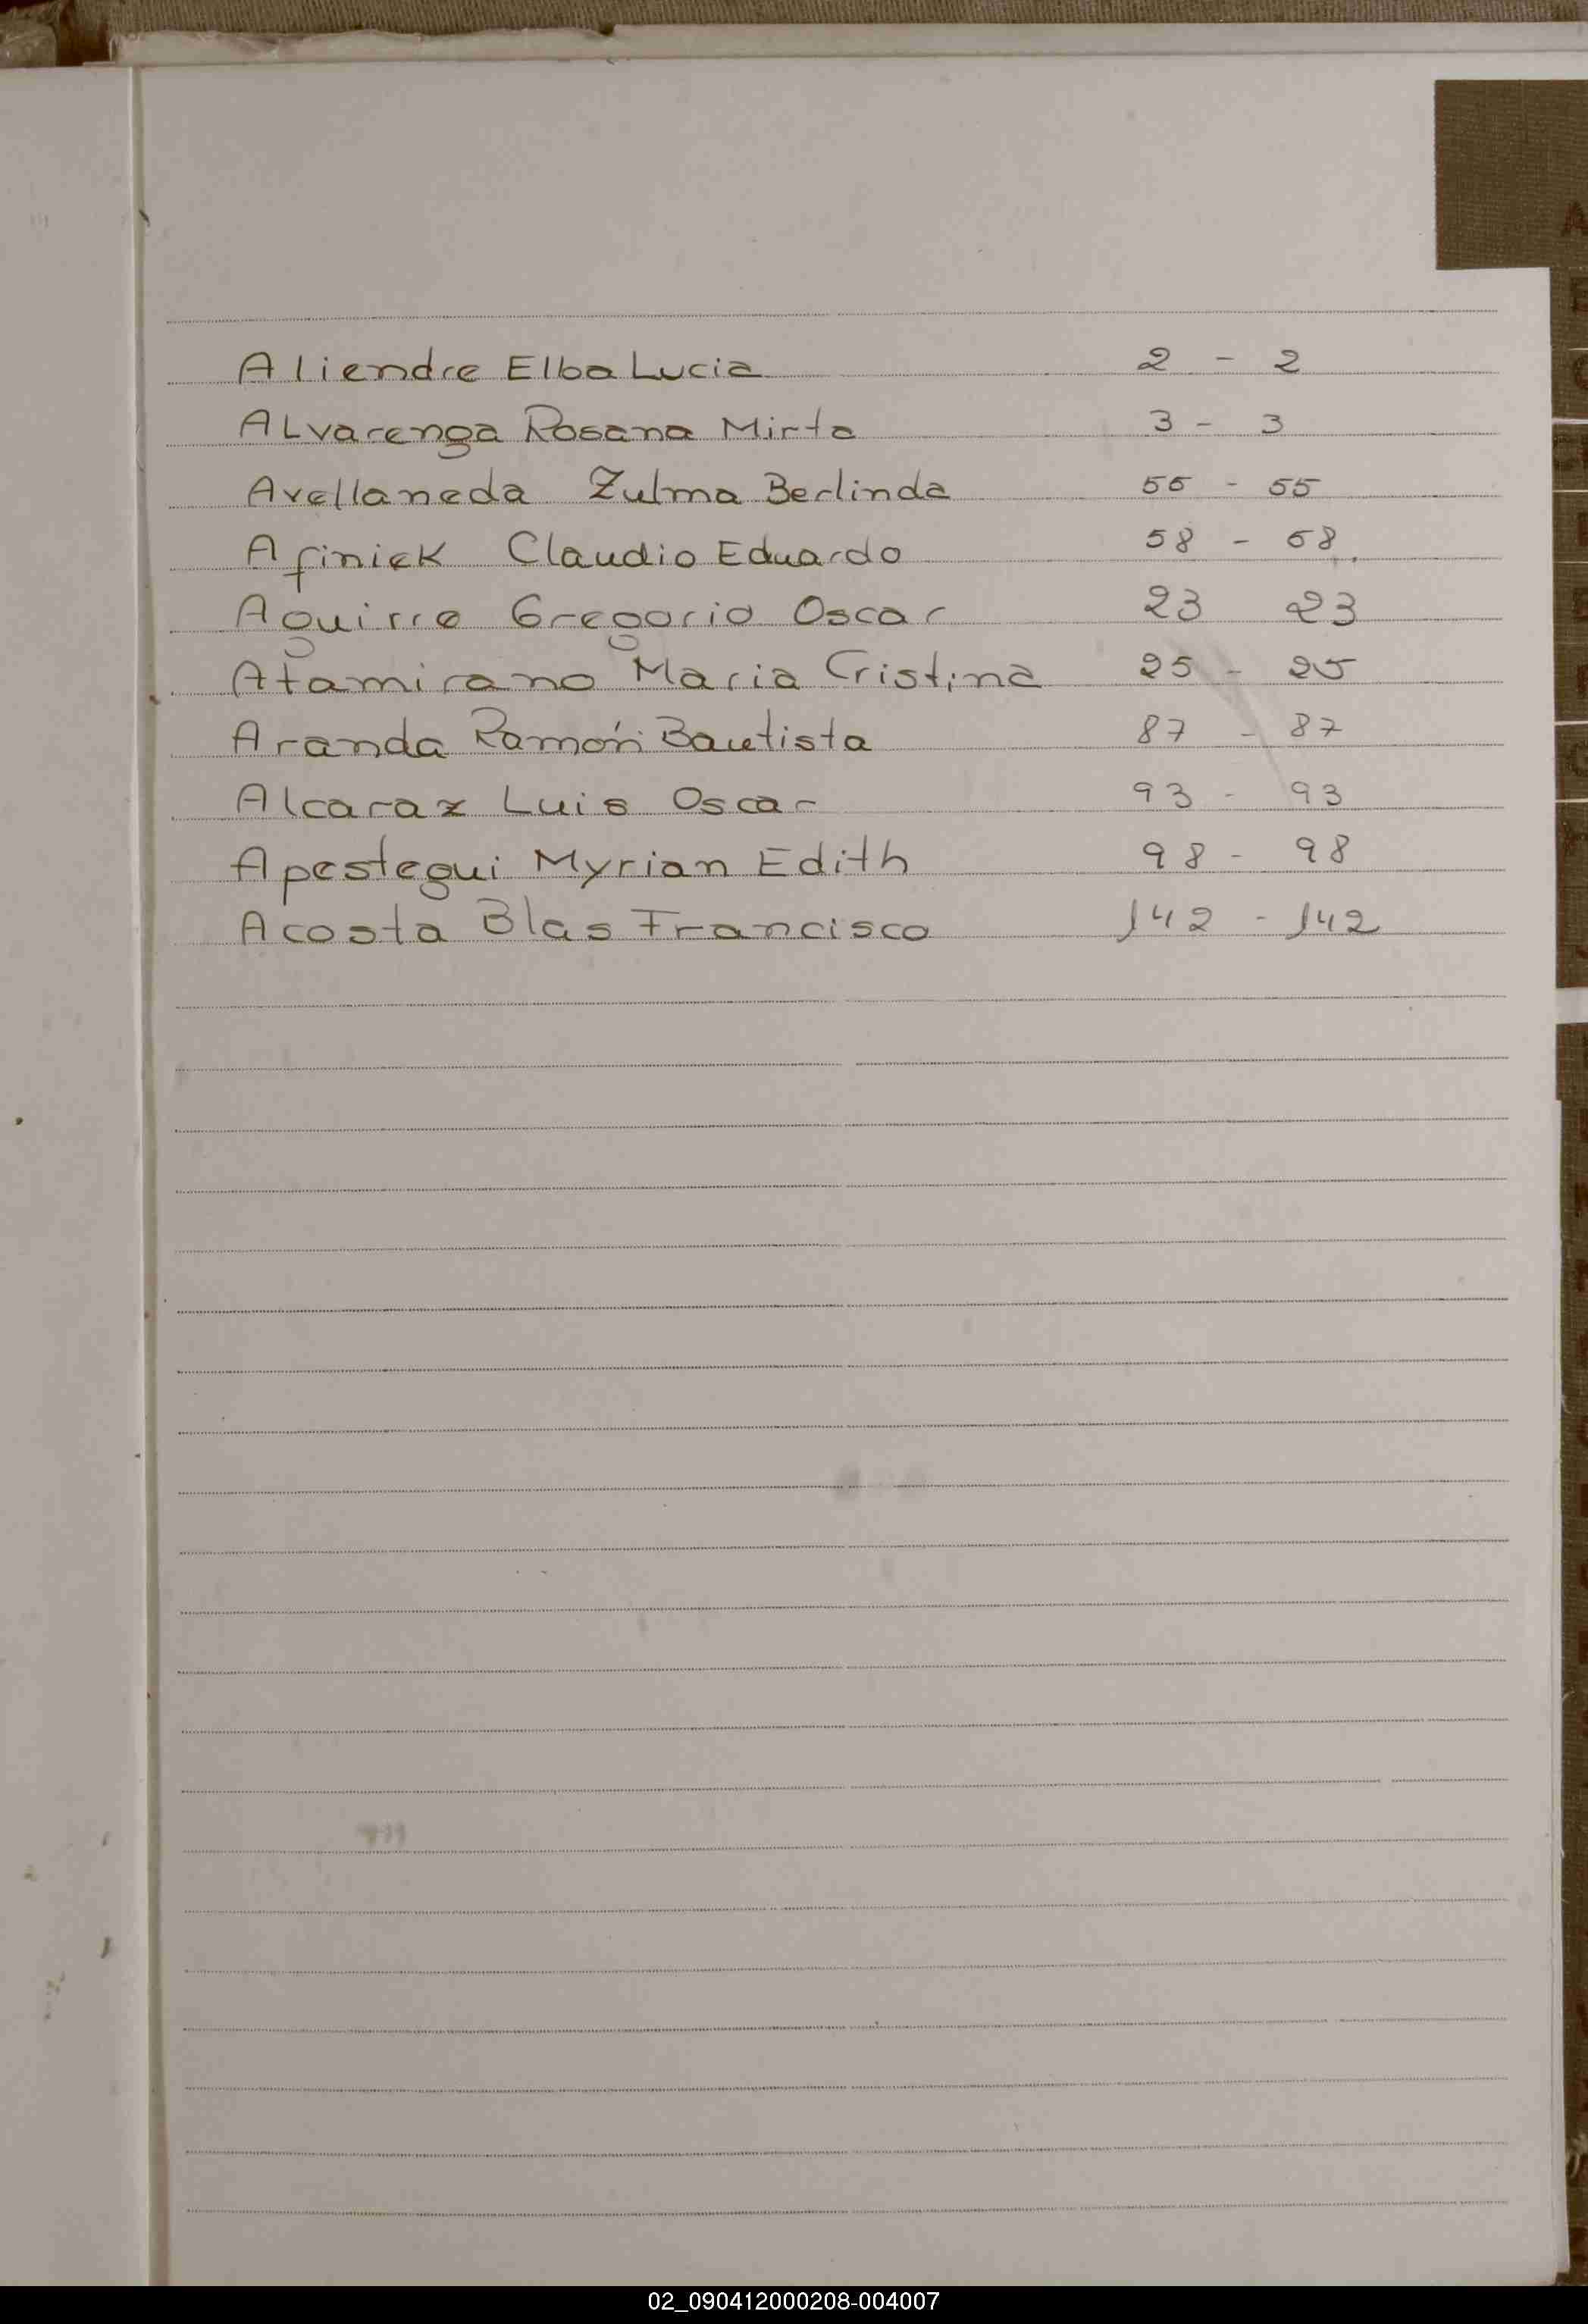 Aliendre Elba Lucia 2 - 2
ALvarenga Rosana Mirta 3 - 3
Avellaneda Zulma Berlinda 55 - 55
Afiniek Claudio Eduardo 58 - 58.
Aguirre Gregorio Oscar 23 23
Atamirano Maria Cristina 25 - 25
Aranda Ramón Bautista 87 - 87
Alcaraz Luis Oscar 93 - 93
Apestegui Myrian Edith 98 - 98
Acosta Blas Francisco 142 - 142
02_090412000208-004007